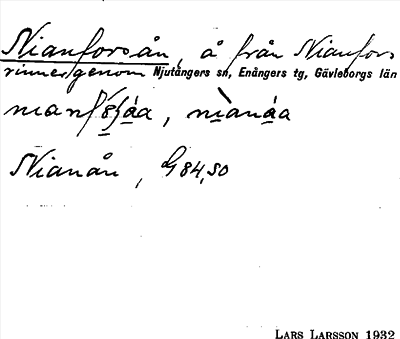 Nianforsån, å från Nianfors
rinner genom Njutångers sn, Enångers tg, Gävleborgs län
nianf(ö̱s)å̱a, nìa̱nå̱a
Nianån, G84,SO
LARS LARSSON 1932